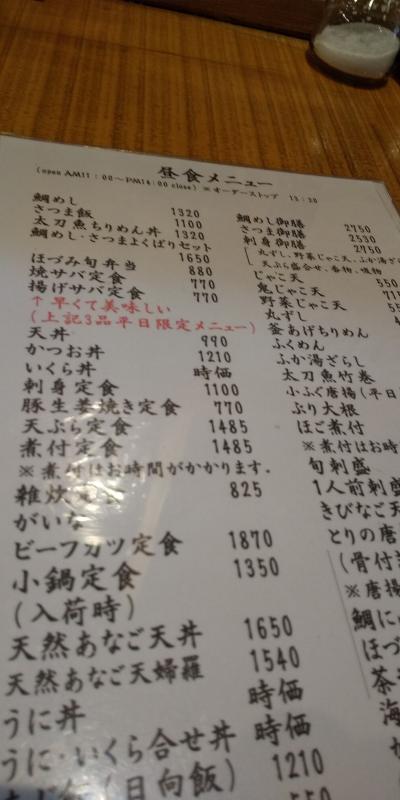 昼食メニュー
(open AM11:00～PM14:00 close) ※オーダーストップ 13:30
鯛めし 1320
さつま飯 1100
太刀魚ちりめん丼 1320
鯛めし・さつまよくばりセット 1650
ほづみ旬弁当 880
焼サバ定食 770
揚げサバ定食 770
↑早くて美味しい
(上記3品平日限定メニュー)
天丼 990
かつお丼 1210
いくら丼 時価
刺身定食 1100
豚生姜焼き定食 770
天ぷら定食 1485
煮付定食 1485
※煮付はお時間がかかります.
雑炊定食 825
がいな
ビーフカツ定食 1870
小鍋定食 1350
(入荷時)
天然あなご天丼 1650
天然あなご天婦羅 1540
うに丼 時価
うに・いくら合せ丼 時価
(日向飯) 1210
550
鯛めし御膳 2750
さつま御膳 2530
刺身御膳 2750
丸ずし,野菜じゃこ天,ふか湯ざ
天ぷら盛合せ,香物,吸物
じゃこ天 550
鬼じゃこ天
野菜じゃこ天
丸ずし
釜あげちりめん
ふくめん
ふか湯ざらし
太刀魚竹巻
小ふぐ唐揚(平日
ぶり大根
ほご煮付
※煮付はお時
旬刺盛
1人前刺盛
きびなご天
とりの唐
(骨付
※唐揚
鯛に
ほづ
茶
海